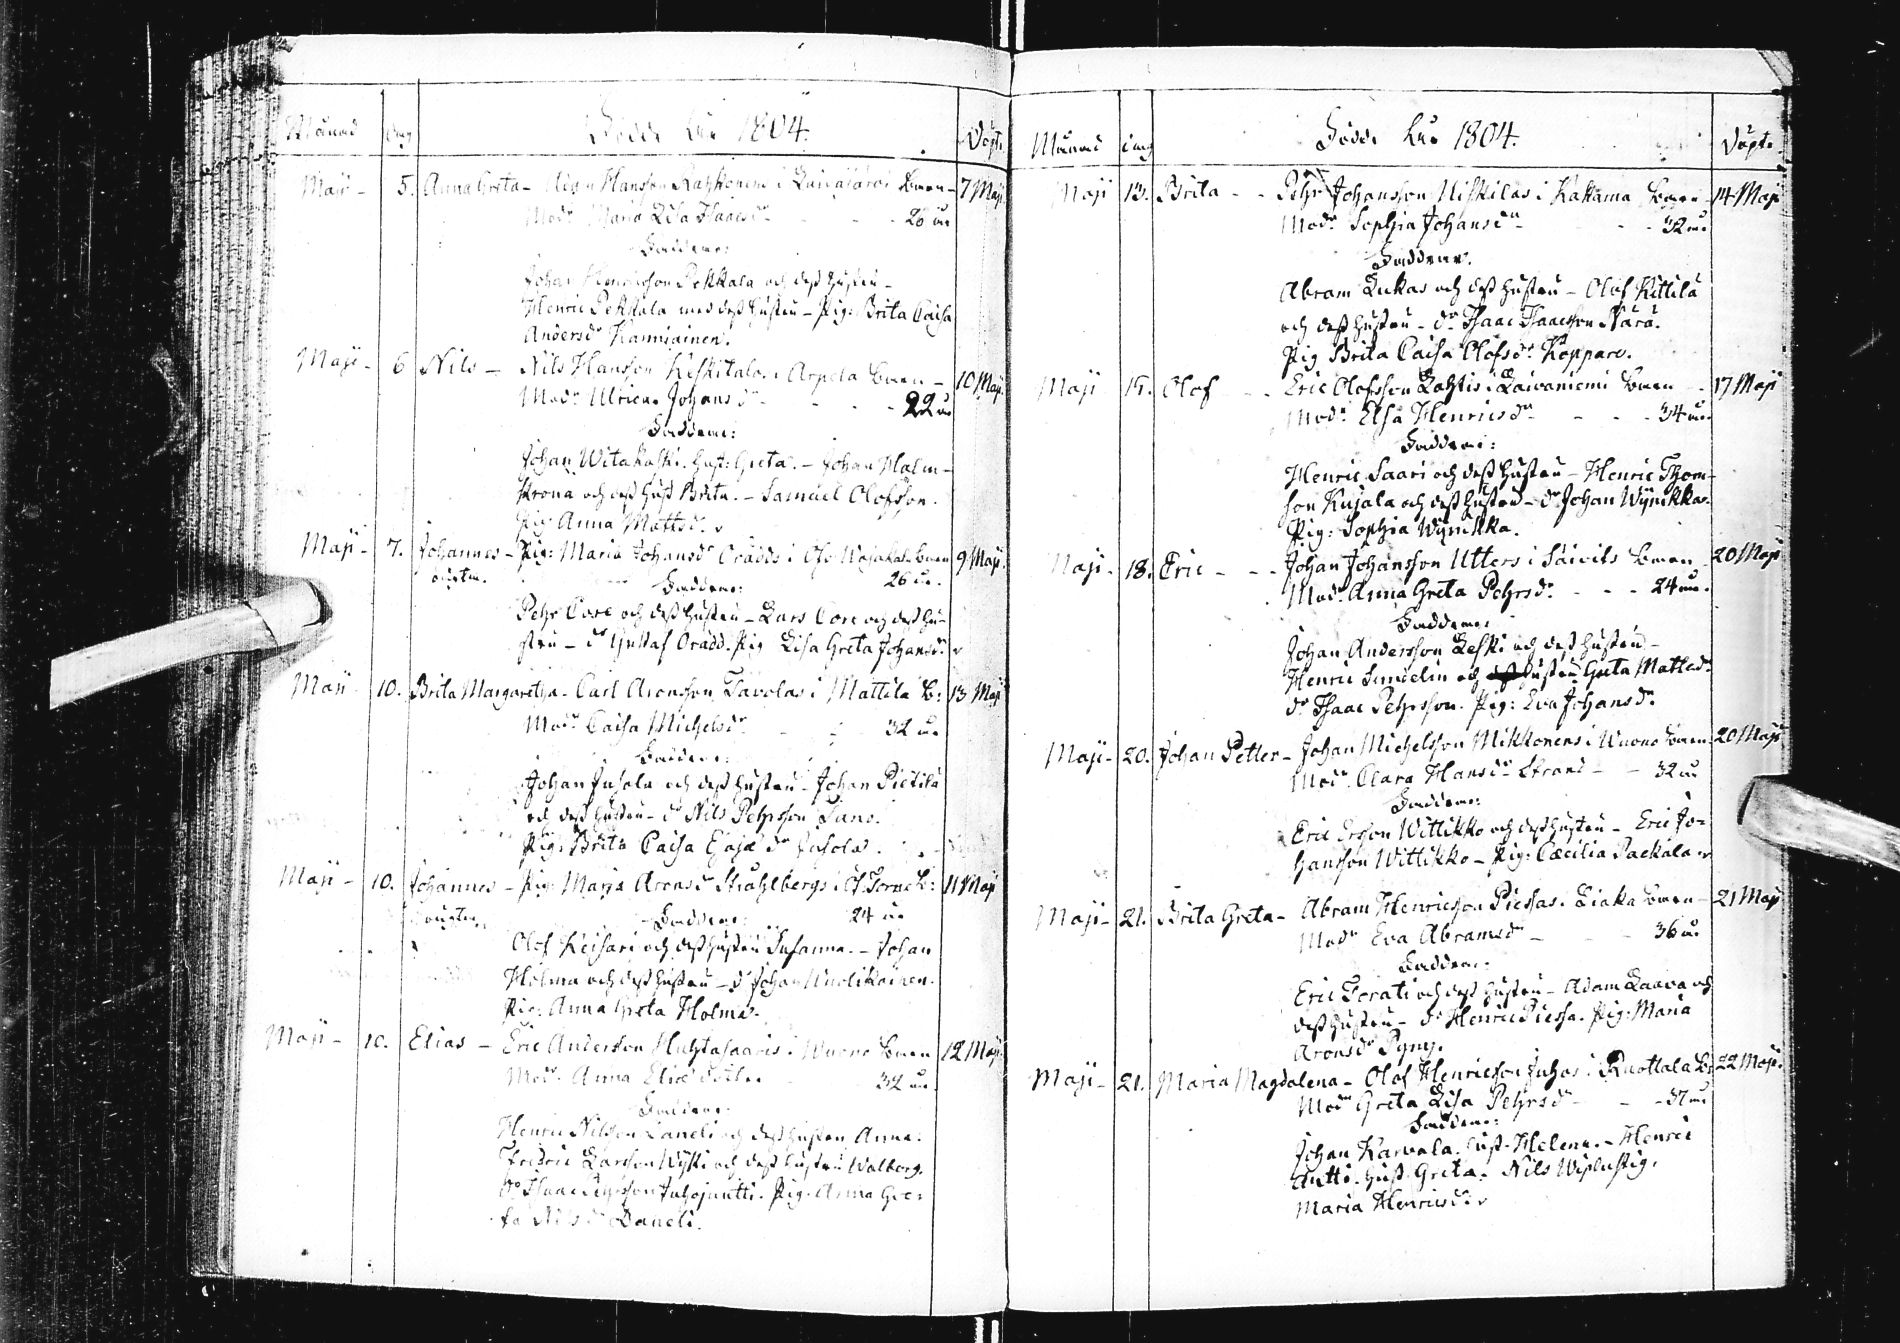 Månad Dag Födde År 1804. Döpt.
Maji - 5. Anna Greta - Hansson i Bÿen - 7 Maji
Modr Maria Lisa Isaacsdr - - - 26 år
Faddrar:
Johan Henricsson Pekkala och dess hustru -
Henric Pekkala med dess hustru - Pig: Brita Caisa
Andersdr Kanniainen.
Maji - 6 Nils - Nils Hansson Keskitalo i Arpela Bÿen - 10 Maji
Modr Ulrica Johansdr - - - 22 år
Faddrar:
Johan Witakoski. hust: Greta. - Johan Malm-
krona och dess hust Brita. - Samuel Olofsson.
Pig: Anna Mattsdr
Maji - 7. Johannes - Pig: Maria Johansdr Orädds i Ofv. Wojakala Bÿen 9 Maji
oägta. Faddrar: 26 år.
Pehr Core och dess hustru - Lars Core och dess hu-
stru - dr Gustaf Orädd. Pig Lisa Greta Johansdr
Maji - 10. Brita Margaretha - Carl Aronsson Tavolas i Mattila B: 13 Maji
Modr Caisa Michelsdr - - 32 år
Faddrar:
Johan Juhola och dess hustru - Johan Pietilä
och dess hustru - dr Nils Pehrsson
Pig: Brita Caisa Esajædr Juhola.
Maji - 10. Johannes - Pig: Maria Aronsdr Strahlbergs i B: 11 Maji
oägta. Faddrar: 24 år
Olof Keisari och dess hustru Susanna. - Johan
Holma och dess hustru - dr Johan Wuolikainen.
Pig: Anna Greta Holma.
Maji - 10. Elias - Eric Andersson Huhtasaaris i Wuono Bÿen 12 Maji
Modr Anna 32 år
Faddrar:
Henric Nilsson Daneli och dess hustru Anna:
Fredric Larsson och dess hustru Walborg.
dr Isaac Pehrsson Juhojuntti. Pig: Anna Gre-
ta Nilsdr Daneli.
Månad Dag Födde År 1804. Döpt.
Maji 13. Brita - - Pehr Johansson Niskilas i Kakama Bÿen 14 Maji
Modr Sophia Johansdr - - - 32 år
Faddrar.
Abram Lukas och dess hustru - Olof Kittilä
och dess hustru - dr Isaac Isaacsson Närä.
Pig Brita Caisa Olofsdr Koppare.
Maji 15. Olof - - Eric Olofsson Lahtis i Laivaniemi Bÿen - 17 Maji
Modr Elsa Henricsdr - - - 34 år
Faddrar:
Henric Saari och dess hustru - Henric Thom-
son Kujala och dess hustru - dr Johan Wÿnikka.
Pig: Sophia Wÿnikka.
Maji - 18. Eric - - Johan Johansson Utters i Säivits Bÿen 20 Maji
Modr Anna Greta Pehrsdr - - - 24 år.
Faddrar:
Johan Andersson Leski och dess hustru -
Henric Simelin och hustru Greta Mattsdr
dr Isaac Pehrsson. Pig: Eva Johansdr
Maji - 20. Johan Petter - Johan Michelsson Mikkonens i Wuono Bÿen 20 Maji
Modr Clara Hansdr Strand - - 32 år
Faddrar:
Eric Ersson Wittikko och dess hustru - Eric Jo-
hansson Wittikko - Pig: Cæcilia Packala
Maji - 21. Brita Greta - Abram Henricsson Piessas i Liaka Bÿen - 21 Maji
Modr Eva Abramsdr - - 36 år
Faddrar:
Eric Torati och dess hustru - Adam Laava och
dess hustru - dr Henric Piessa. Pig: Maria
Aronsdr Pyny.
Maji - 21. Maria Magdalena - Olof Henricsson Juhos i Ruottala B: 22 Maji.
Modr Greta Lisa Pehrsdr - - 37 år
Faddrar:
Johan Karvala. hust. Helena. - Henric
Antti. hust. Greta. Nils
Maria Henricsdr